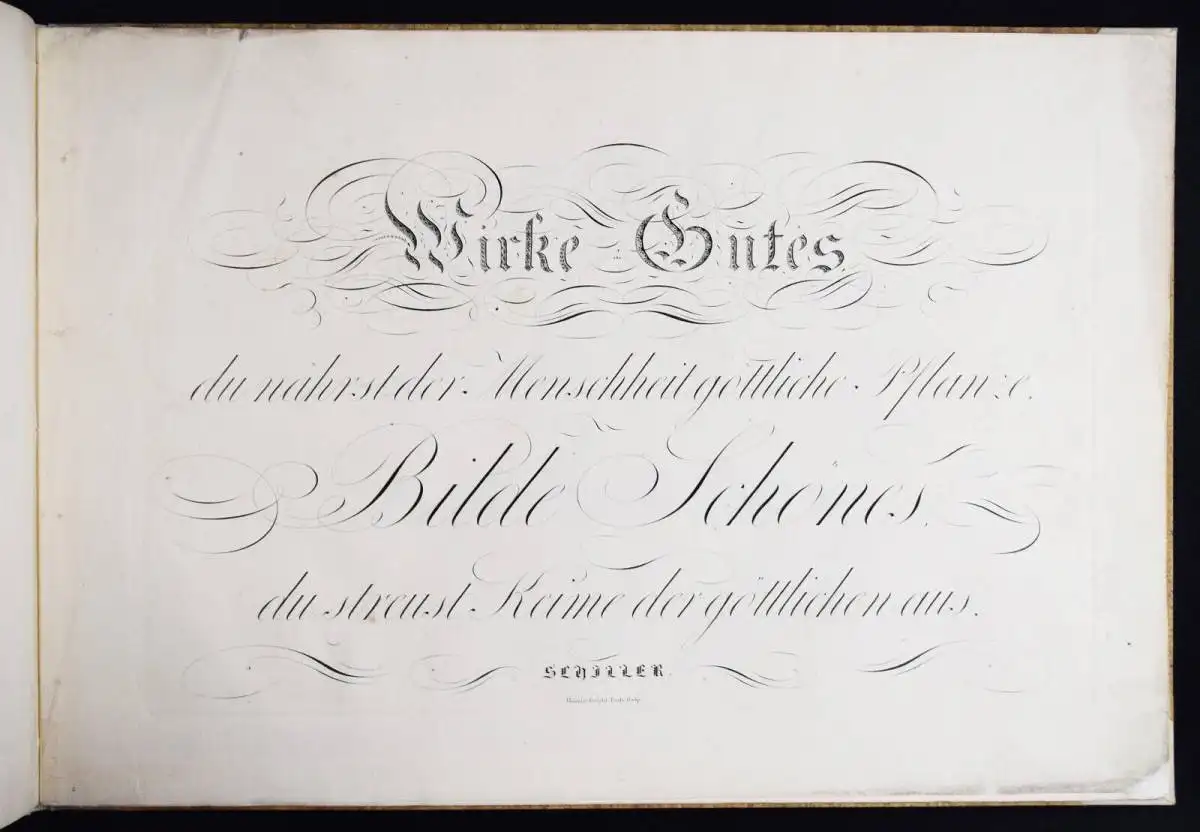 Wirke Gutes
du nährst der Menschheit göttliche Pflanze.
Bilde Schönes,
du streust Keime der göttlichen aus.
SCHILLER.